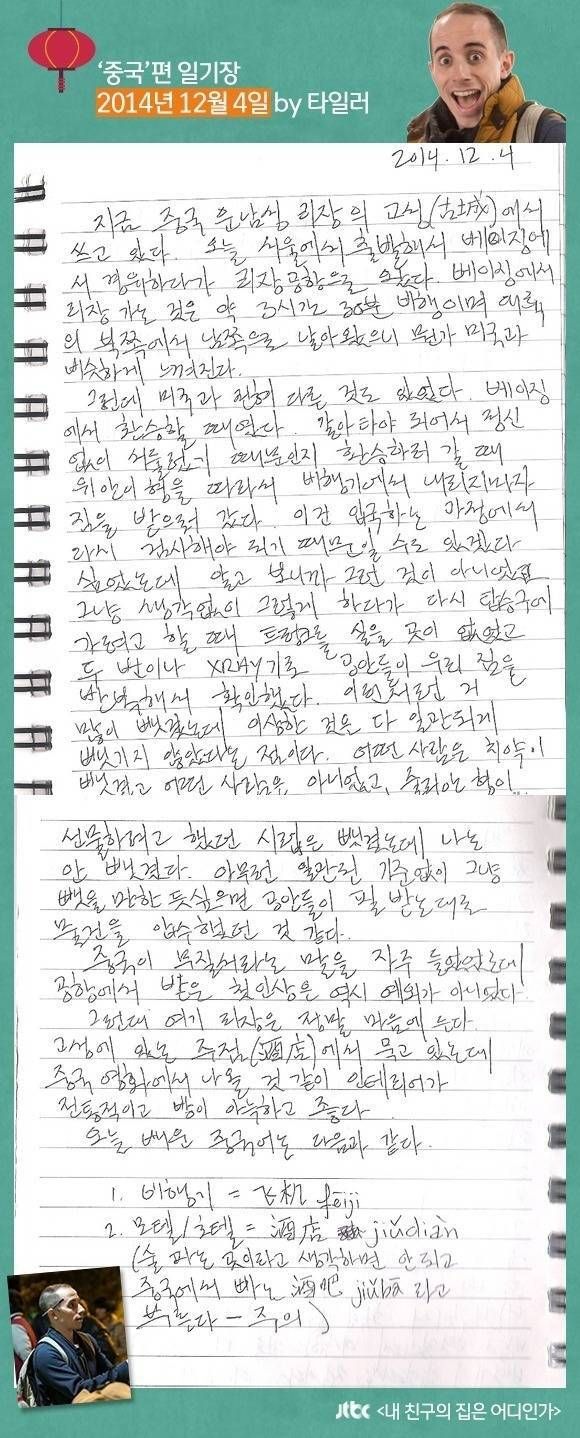 '중국'편 일기장
2014년 12월 4일 by 타일러
2014. 12. 4
지금 중국 운남성 리장의 고성(古城)에서
쓰고 있다. 오늘 서울에서 출발해서 베이징에
서 경유하다가 리장공항으로 왔다. 베이징에서
리장 가는 것은 약 3시간 30분 비행이며 대륙
의 북쪽에서 남쪽으로 날아왔으니 뭔가 미국과
비슷하게 느껴진다.
그런데 미국과 전혀 다른 것도 있었다. 베이징
에서 환승할 때였다. 갈아타야 되어서 정신
없이 서둘렀기 때문인지 환승하러 갈 때
위안이 형을 따라서 비행기에서 내리자마자
짐을 받으러 갔다. 이건 입국하는 과정에서
다시 검사해야 되기 때문일 수도 있겠다
싶었는데 알고 보니까 그런 것이 아니었고
그냥 생각없이 그렇게 하다가 다시 탑승구에
가려고 할 때 트렁크를 실을 곳이 없었고
두 번이나 XRAY기로 공안들이 우리 짐을
반복해서 확인했다. 이런저런 거
많이 뺏겼는데 이상한 것은 다 일관되게
뺏기지 않았다는 점이다. 어떤 사람은 치약이
뺏겼고 어떤 사람은 아니었고, 줄리안 형이
선물하려고 했던 시럽은 뺏겼는데 나는
안 뺏겼다. 아무런 일관된 기준없이 그냥
뺏을 만한 듯싶으면 공안들이 필 받는대로
물건을 압수했던 것 같다.
중국이 무질서라는 말을 자주 들었었는데
공항에서 받은 첫인상은 역시 예외가 아니었다.
그런데 여기 리장은 정말 마음에 든다.
고성에 있는 주점(酒店)에서 묵고 있는데
중국 영화에서 나올 것 같이 인테리어가
전통적이고 방이 아늑하고 좋다.
오늘 배운 중국어는 다음과 같다.
1. 비행기 = 飞机 fēiji
2. 모텔/호텔 = 酒店 jiǔdiàn
(술 파는 곳이라고 생각하면 안 되고
중국에서 바는 酒吧 jiǔbā 라고
부른다 - 주의)
jtbc <내 친구의 집은 어디인가>